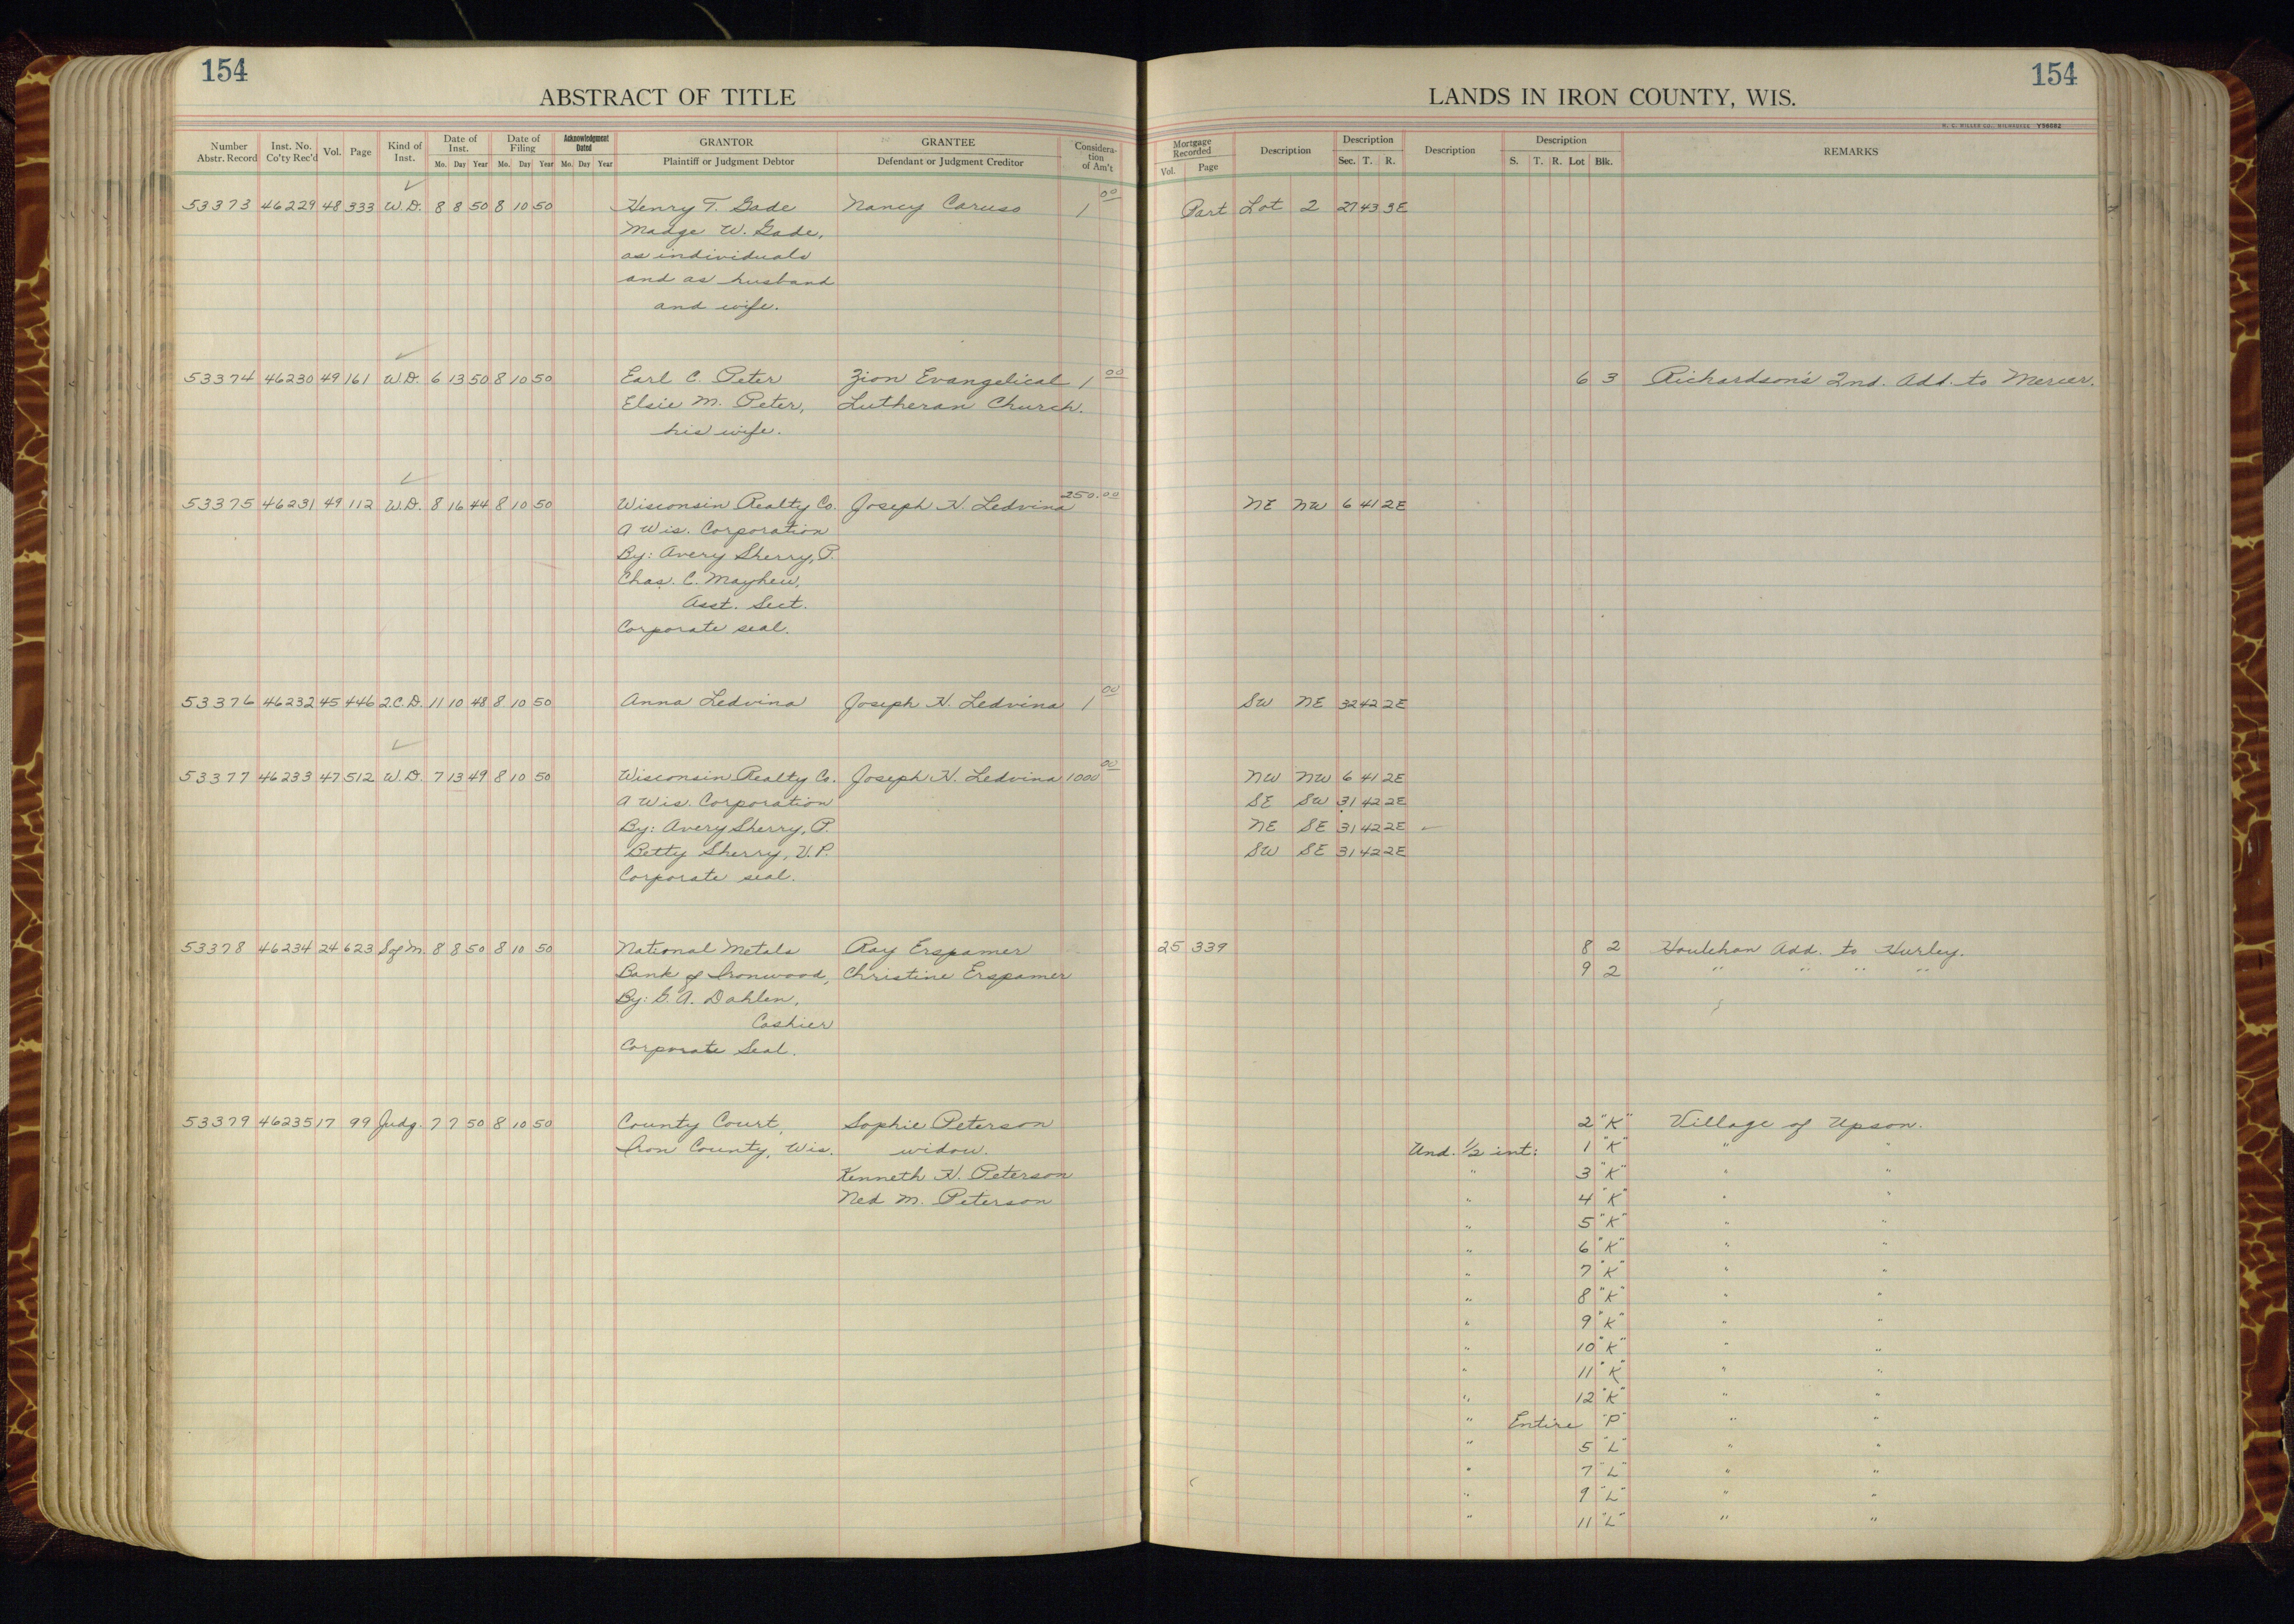 154
ABSTRACT OF TITLE
LANDS IN IRON COUNTY, WIS.
154
H. C. MILLER CO., MILWAUKEE Y56082
Number Abstr. Record Inst. No. Co'ty Rec'd Vol. Page Kind of Inst. Date of Inst. Mo. Day Year Date of Filing Mo. Day Year Acknowledgment Dated Mo. Day Year GRANTOR Plaintiff or Judgment Debtor GRANTEE Defendant or Judgment Creditor Considera-tion of Am't Mortgage Recorded Vol. Page Description Description Sec. T. R. Description Description S. T. R. Lot Blk. REMARKS
53373 46229 48 333 W.D. 8 8 50 8 10 50 Henry T. Gade Nancy Caruso 1 00 Part Lot 2 27 43 3E
Madge W. Gade,
as individuals
and as husband
and wife.
53374 46230 49 161 W.D. 6 13 50 8 10 50 Earl C. Peter Zion Evangelical 1 00 6 3 Richardson's 2nd. Add. to Mercer.
Elsie M. Peter, Lutheran Church.
his wife.
53375 46231 49 112 W.D. 8 16 44 8 10 50 Wisconsin Realty Co. Joseph H. Ledvina 250.00 NE NW 6 41 2E
A Wis. Corporation
By: Avery Sherry, P.
Chas. C. Mayhew,
Asst. Sect.
Corporate seal.
53376 46232 45 446 2.C.D. 11 10 48 8 10 50 Anna Ledvina Joseph H. Ledvina 1 00 SW NE 32 42 2E
53377 46233 47 512 W.D. 7 13 49 8 10 50 Wisconsin Realty Co. Joseph H. Ledvina 1000 00 NW NW 6 41 2E
A Wis. Corporation SE SW 31 42 2E
By: Avery Sherry, P. NE SE 31 42 2E
Betty Sherry, V.P. SW SE 31 42 2E
Corporate seal.
53378 46234 24 623 S of M. 8 8 50 8 10 50 National Metals Ray Erspamer 25 339 8 2 Houlehan Add. to Hurley.
Bank of Ironwood, Christine Erspamer 9 2 " " " "
By: G. A. Dahlen,
Cashier
Corporate Seal.
53379 46235 17 99 Judg. 7 7 50 8 10 50 County Court, Sophie Peterson 2 "K" Village of Upson.
Iron County, Wis. widow. Und. 1/2 int: 1 "K" " "
Kenneth H. Peterson " 3 "K" " "
Ned M. Peterson " 4 "K" " "
" 5 "K" " "
" 6 "K" " "
" 7 "K" " "
" 8 "K" " "
" 9 "K" " "
" 10 "K" " "
" 11 "K" " "
" 12 "K" " "
" Entire "P" " "
" 5 "L" " "
" 7 "L" " "
" 9 "L" " "
" 11 "L" " "